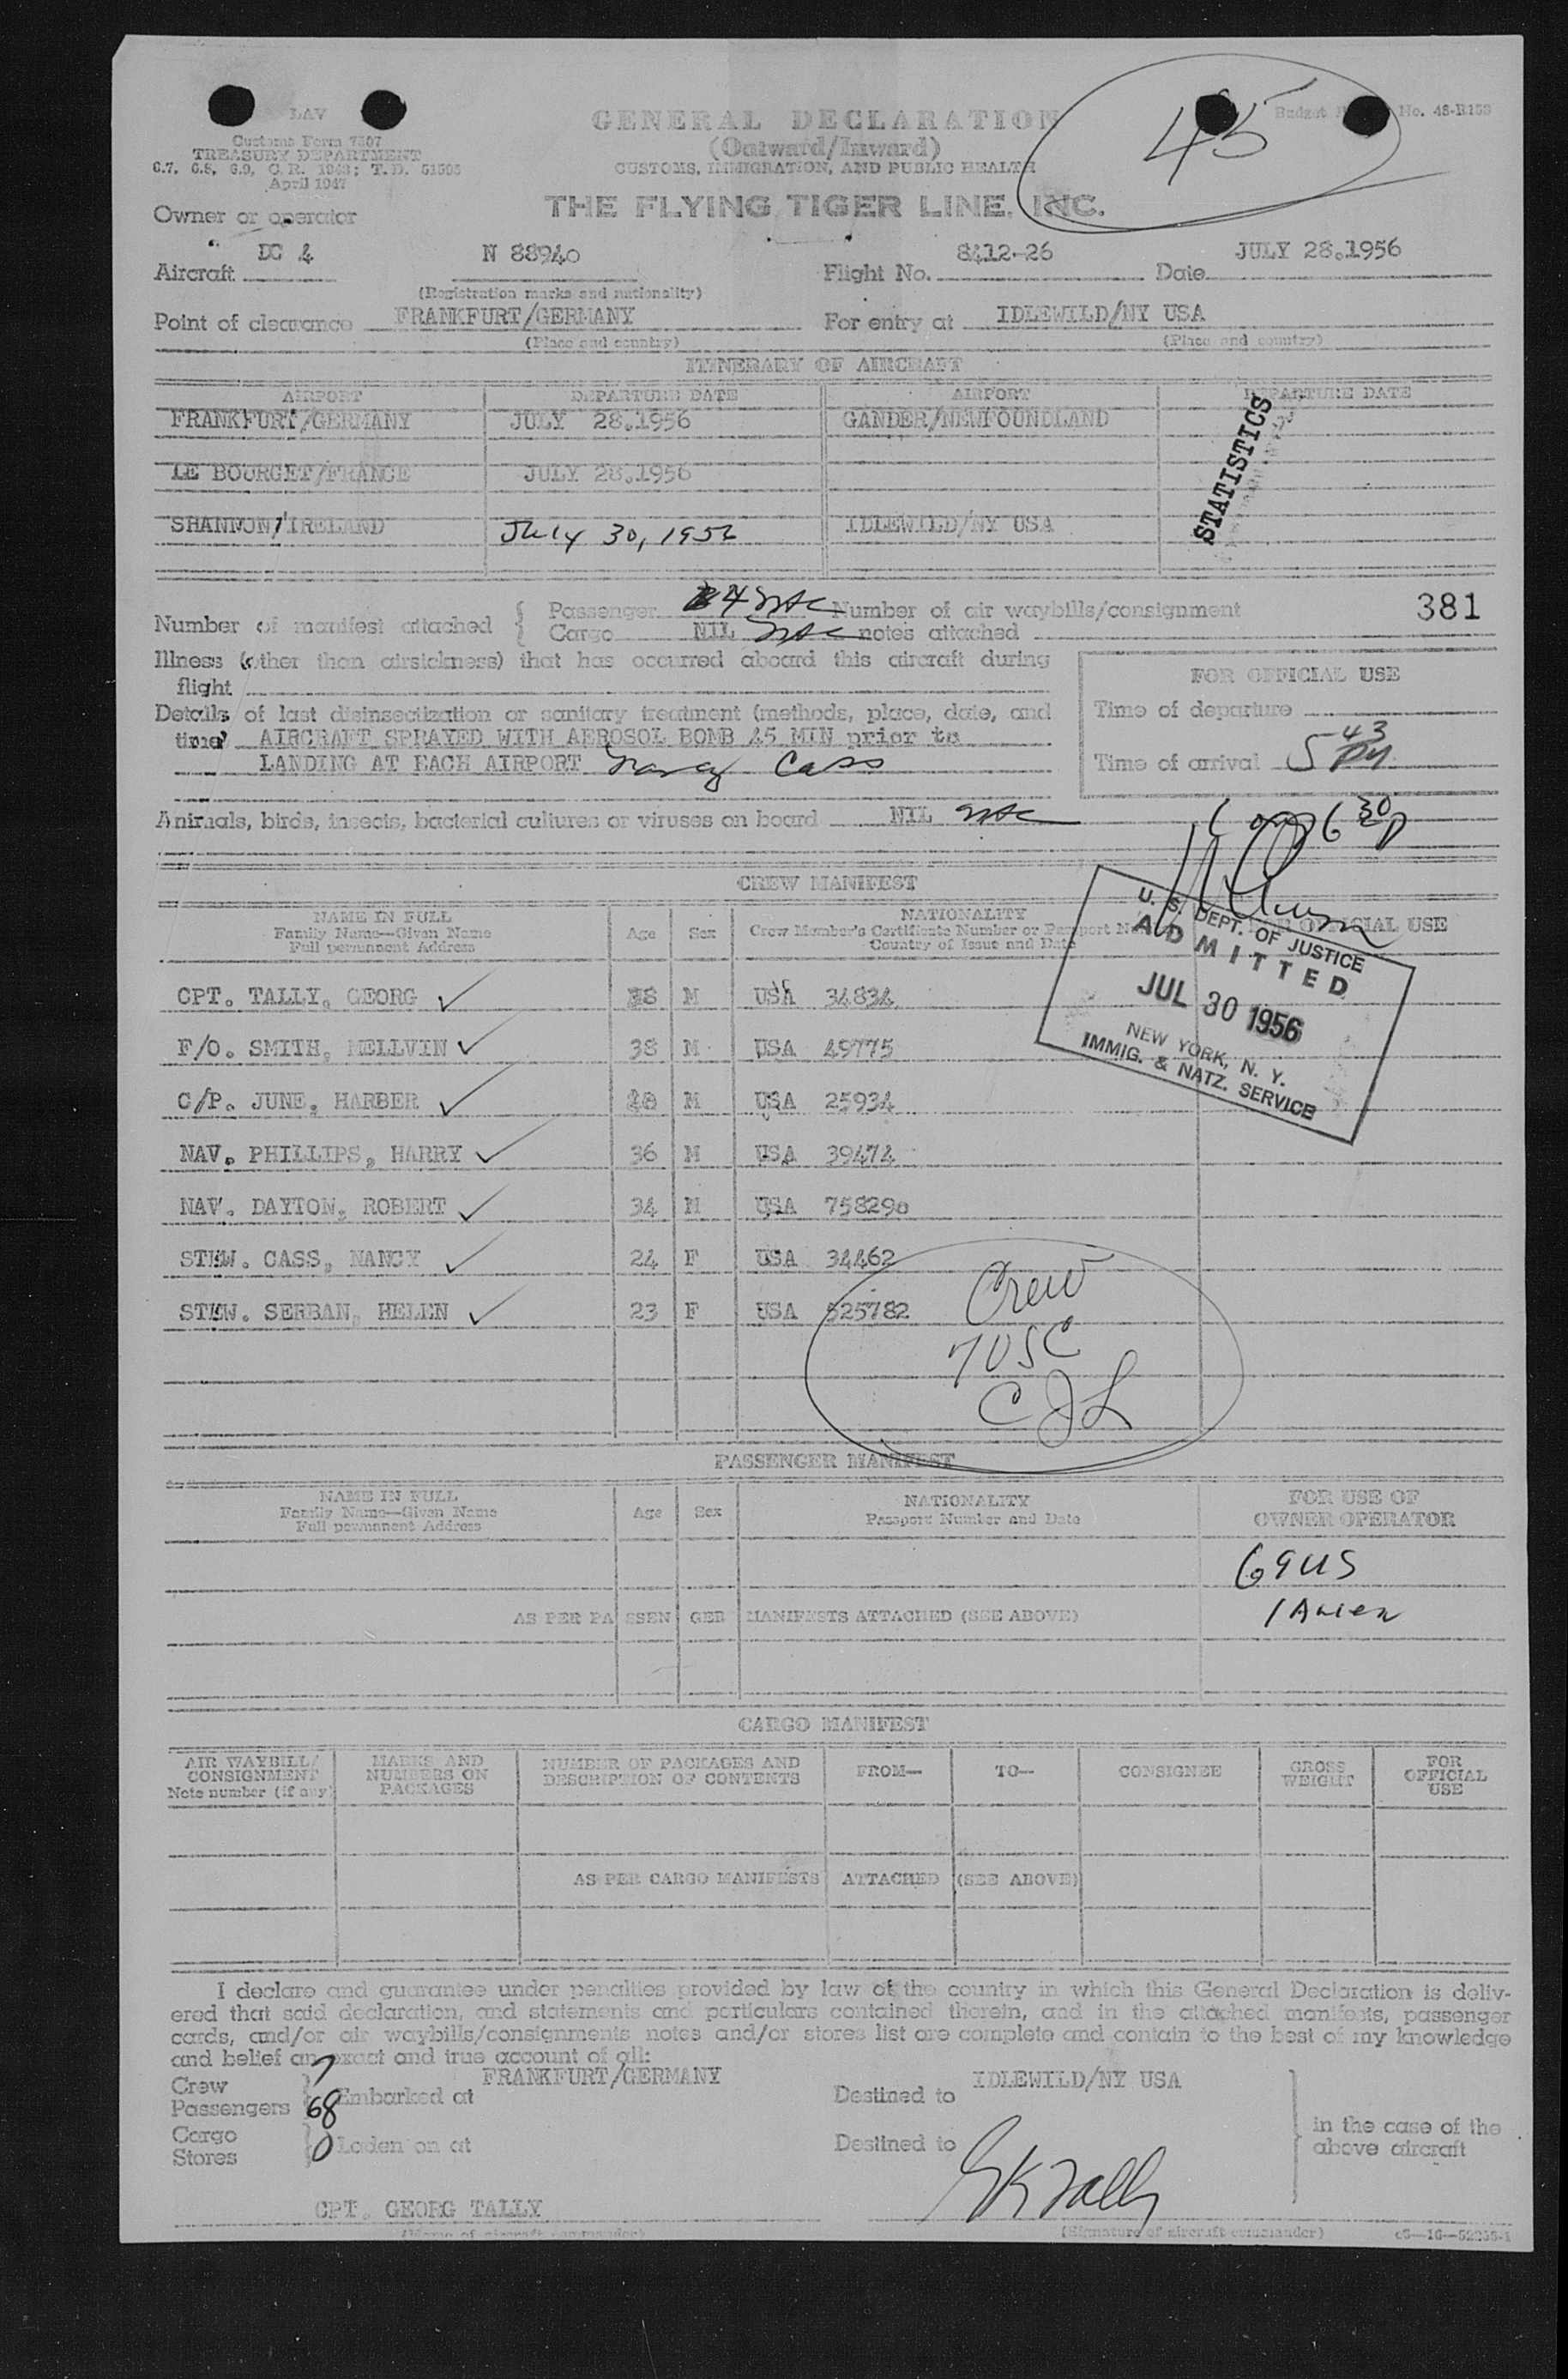 LAV
Customs Form 7507
TREASURY DEPARTMENT
April 1947
GENERAL DECLARATION
(Outward/Inward)
CUSTOMS, IMMIGRATION, AND PUBLIC HEALTH
THE FLYING TIGER LINE, INC.
45
No. 48-R153
Owner or operator
DC 4 N 88940 8412-26 JULY 28.1956
Aircraft Flight No. Date
(Registration marks and nationality)
Point of clearance FRANKFURT/GERMANY For entry at IDLEWILD/NY USA
(Place and country) (Place and country)
ITINERARY OF AIRCRAFT
AIRPORT DEPARTURE DATE AIRPORT DEPARTURE DATE
FRANKFURT/GERMANY JULY 28.1956 GANDER/NEWFOUNDLAND
LE BOURGET/FRANCE JULY 28.1956
SHANNON/IRELAND July 30, 1956 IDLEWILD/NY USA
STATISTICS
Number of manifest attached { Passenger 4 Number of air waybills/consignment 381
Cargo NIL notes attached
Illness (other than airsickness) that has occurred aboard this aircraft during
flight
FOR OFFICIAL USE
Details of last disinsectization or sanitary treatment (methods, place, date, and
time) AIRCRAFT SPRAYED WITH AEROSOL BOMB 45 MIN prior to
LANDING AT EACH AIRPORT Nancy Cass
Time of departure
Time of arrival 5 43 PM
Animals, birds, insects, bacterial cultures or viruses on board NIL
6 30 P
CREW MANIFEST
NAME IN FULL
Family Name—Given Name
Full permanent Address
Age Sex
NATIONALITY
Crew Member's Certificate Number or Passport
Country of Issue and Date
FOR OFFICIAL USE
U. S. DEPT. OF JUSTICE
ADMITTED
JUL 30 1956
NEW YORK, N. Y.
IMMIG. & NATZ. SERVICE
CPT. TALLY, GEORG M USA 34834
F/O. SMITH, MELLVIN 38 M USA 49775
C/P. JUNE, HARBER M USA 25934
NAV. PHILLIPS, HARRY 36 M USA 39474
NAV. DAYTON, ROBERT 34 M USA 758290
STEW. CASS, NANCY 24 F USA 34462
STEW. SERBAN, HELEN 23 F USA 525782
Crew
7 USC
CJL
PASSENGER MANIFEST
NAME IN FULL
Family Name—Given Name
Full permanent Address
Age Sex
NATIONALITY
Passport Number and Date
FOR USE OF
OWNER OPERATOR
69 US
1 Alien
AS PER PASSENGER MANIFESTS ATTACHED (SEE ABOVE)
CARGO MANIFEST
AIR WAYBILL/
CONSIGNMENT
Note number (if any)
MARKS AND
NUMBERS ON
PACKAGES
NUMBER OF PACKAGES AND
DESCRIPTION OF CONTENTS
FROM— TO— CONSIGNEE
GROSS
WEIGHT
FOR
OFFICIAL
USE
AS PER CARGO MANIFESTS ATTACHED (SEE ABOVE)
I declare and guarantee under penalties provided by law of the country in which this General Declaration is deliv-
ered that said declaration, and statements and particulars contained therein, and in the attached manifests, passenger
cards, and/or air waybills/consignments notes and/or stores list are complete and contain to the best of my knowledge
and belief an exact and true account of all:
Crew 7
Passengers 68 Embarked at FRANKFURT/GERMANY Destined to IDLEWILD/NY USA
Cargo
Stores 0 Laden on at Destined to
in the case of the
above aircraft
CPT. GEORG TALLY
GK Tally
(Name of aircraft commander) (Signature of aircraft commander)